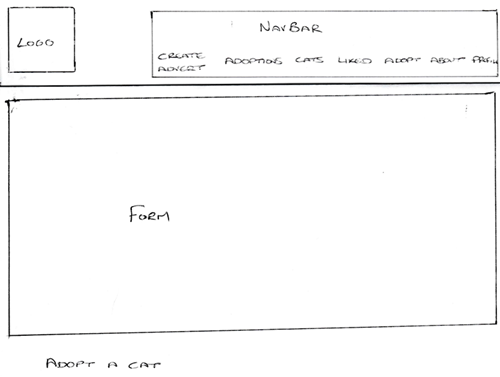 LOGO
NAVBAR
CREATE ADVERT ADOPTIONS CATS LIKED ADOPT ABOUT
FORM
ADOPT A CAT